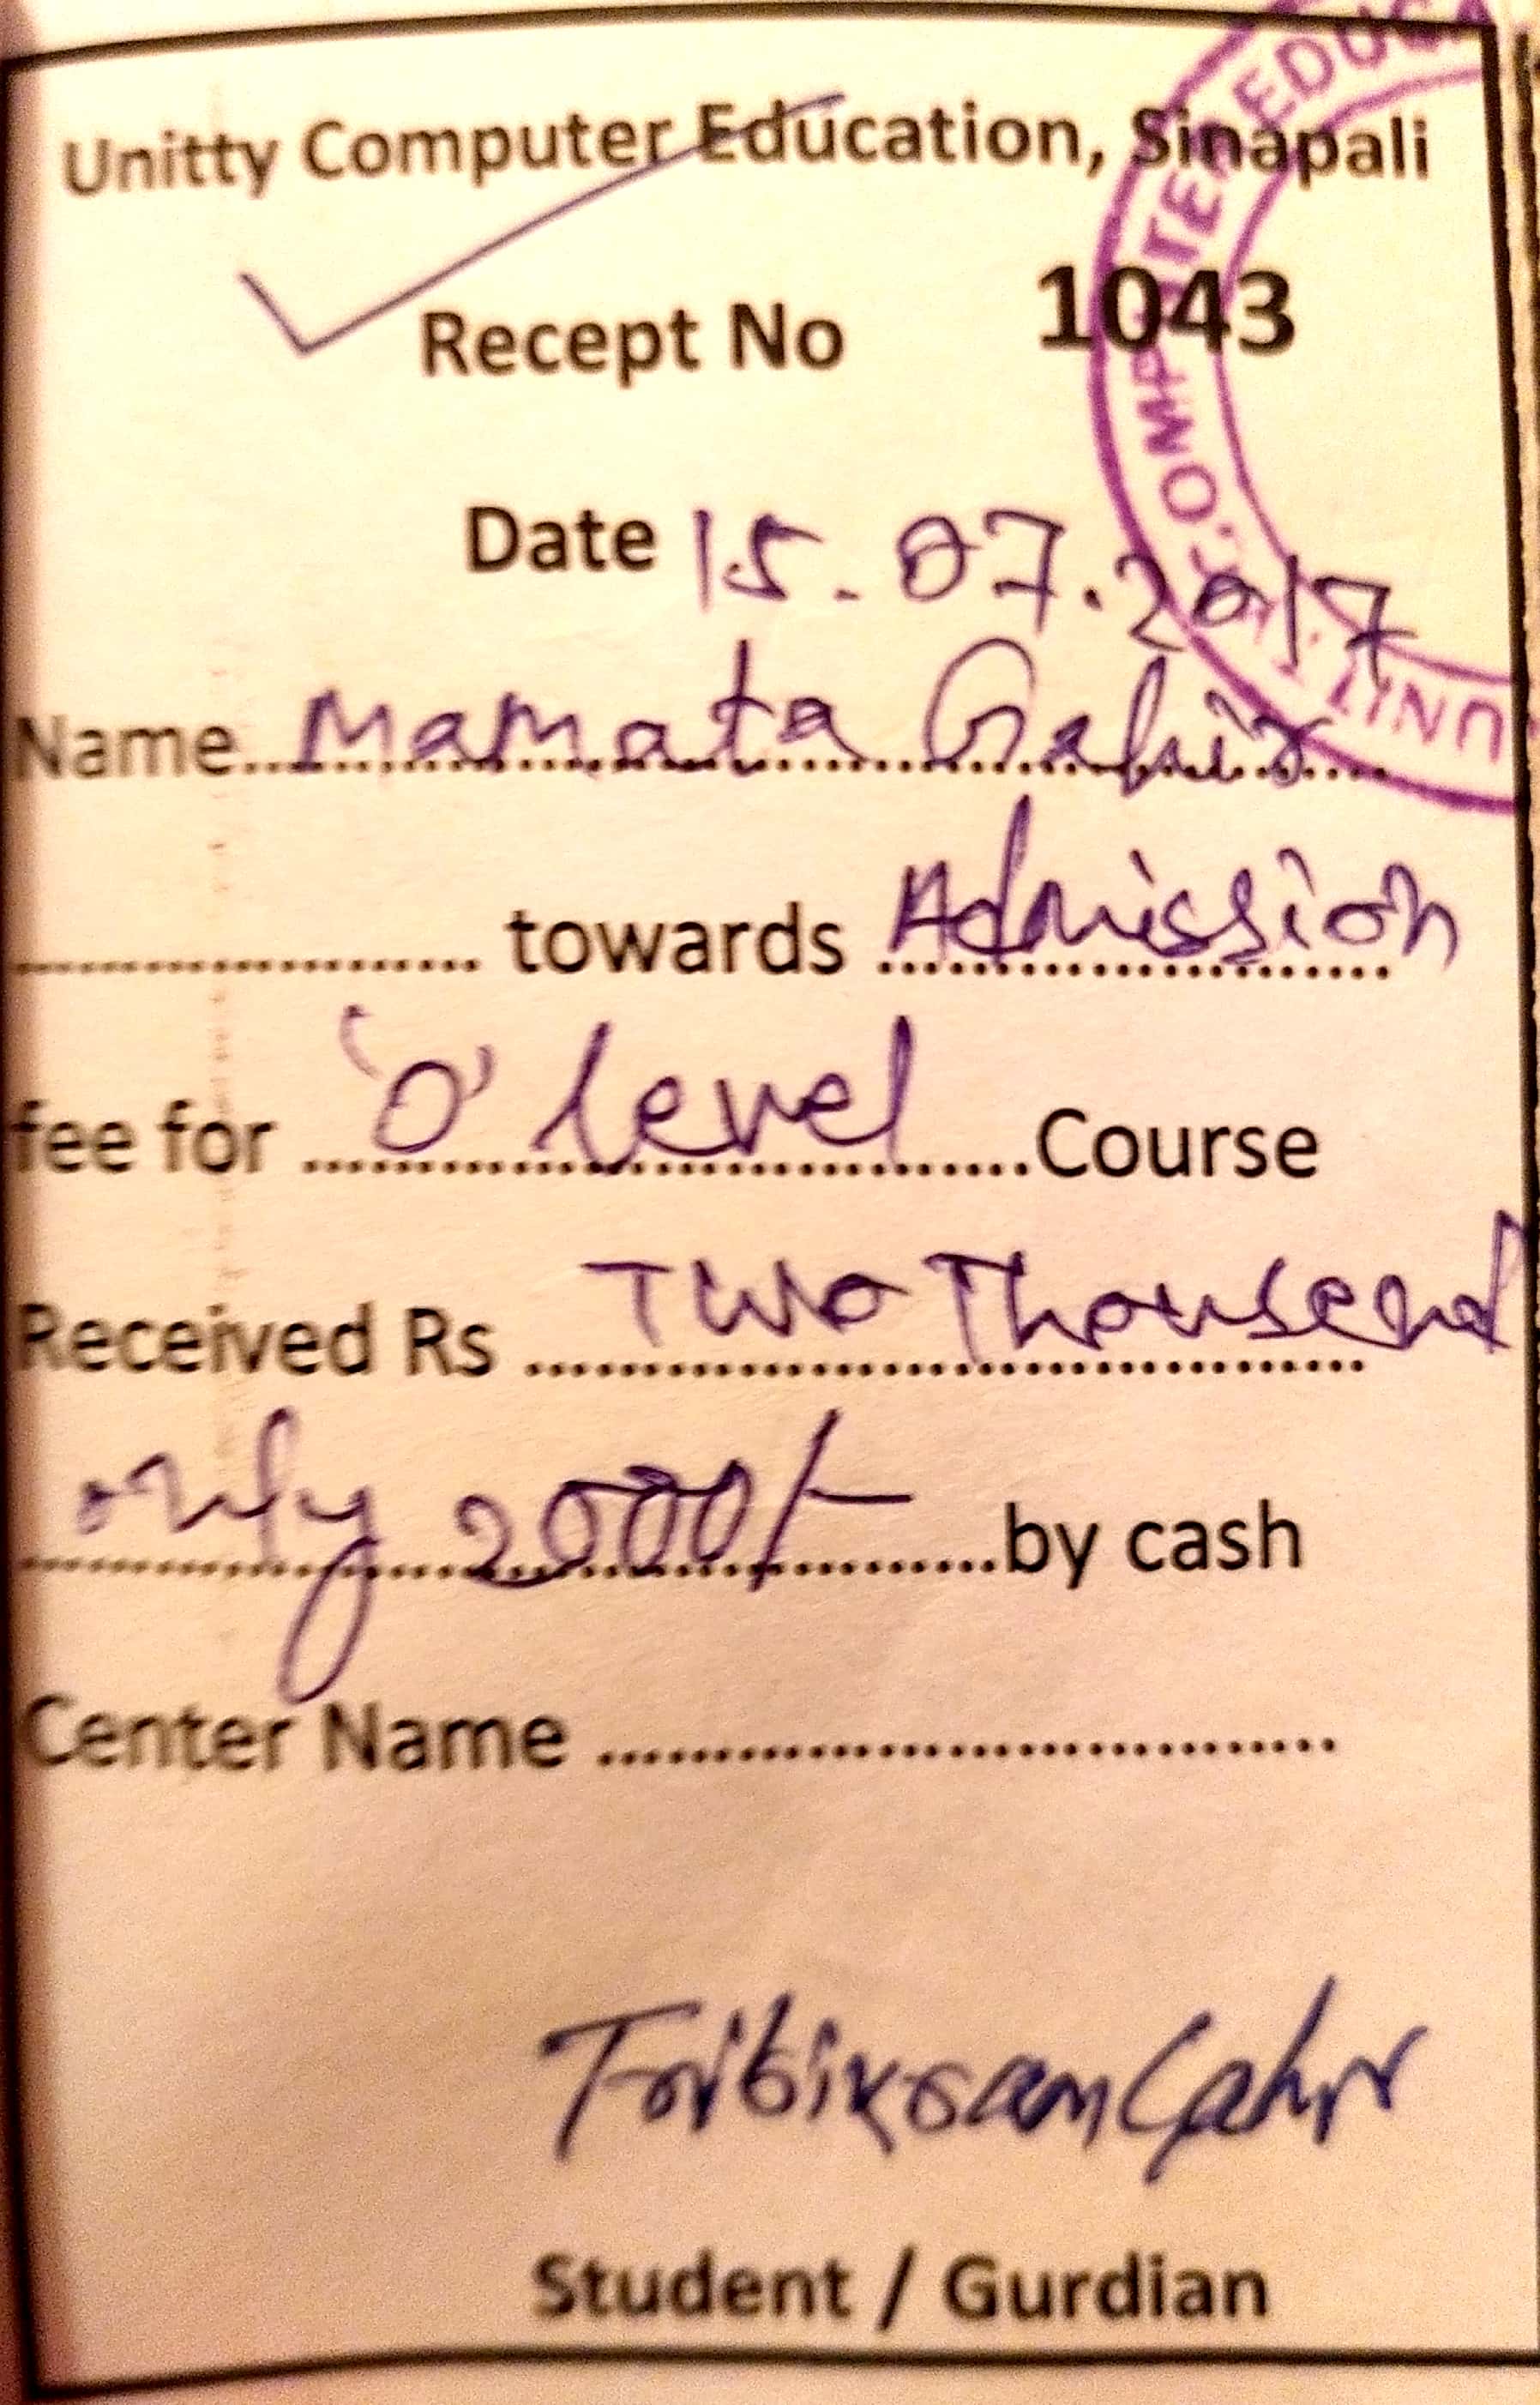 Unitty Computer Education, Sinapali
Recept No 1043
Date 15.07.2017
Name Mamata Gahir
towards Admission
fee for 'O' level Course
Received Rs Two Thousend
only 2000/- by cash
Center Name
Tribikram Gahir
Student / Gurdian
UNITTY COMPUTER EDUCA